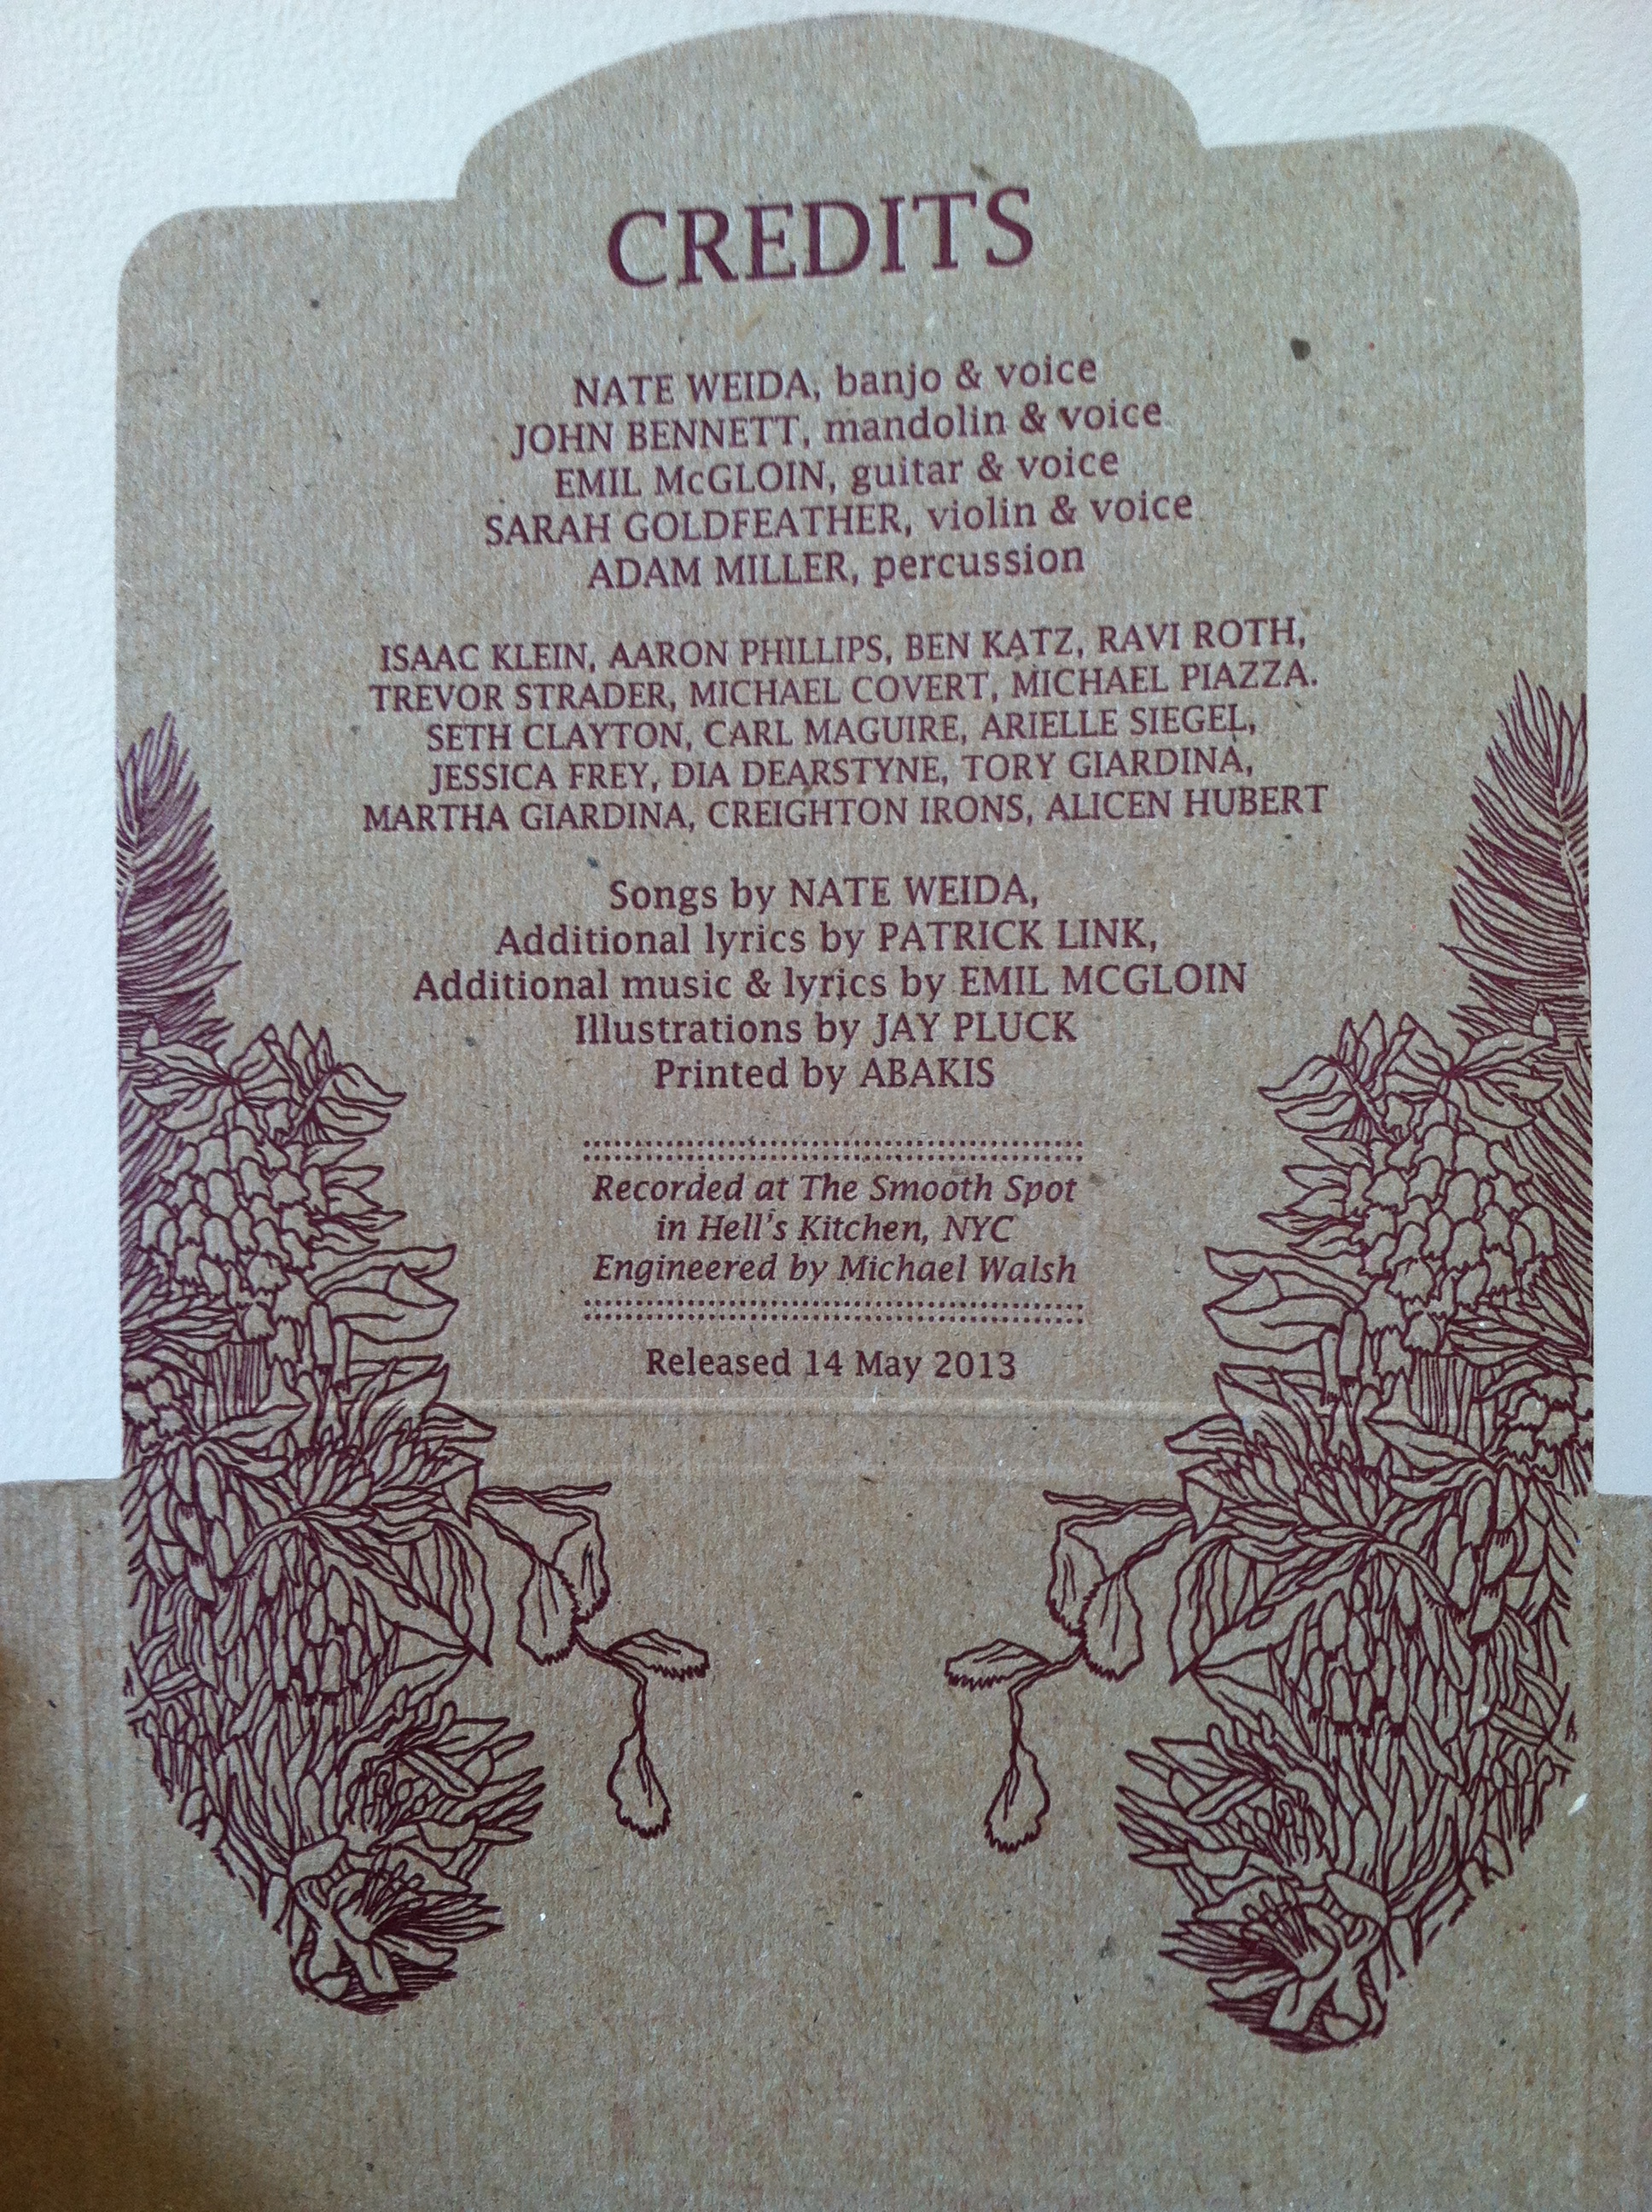 CREDITS
NATE WEIDA, banjo & voice
JOHN BENNETT, mandolin & voice
EMIL McGLOIN, guitar & voice
SARAH GOLDFEATHER, violin & voice
ADAM MILLER, percussion
ISAAC KLEIN, AARON PHILLIPS, BEN KATZ, RAVI ROTH,
TREVOR STRADER, MICHAEL COVERT, MICHAEL PIAZZA.
SETH CLAYTON, CARL MAGUIRE, ARIELLE SIEGEL,
JESSICA FREY, DIA DEARSTYNE, TORY GIARDINA,
MARTHA GIARDINA, CREIGHTON IRONS, ALICEN HUBERT
Songs by NATE WEIDA,
Additional lyrics by PATRICK LINK,
Additional music & lyrics by EMIL MCGLOIN
Illustrations by JAY PLUCK
Printed by ABAKIS
Recorded at The Smooth Spot
in Hell's Kitchen, NYC
Engineered by Michael Walsh
Released 14 May 2013